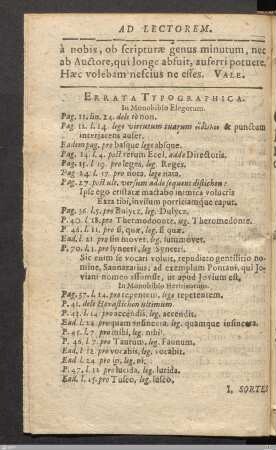 AD LECTOREM.
à nobis, ob scripturæ genus minutum, nec
ab Auctore, qui longe abfuit, auferri potuere.
Hæc volebam nescius ne esses. VALE.
ERRATA TYPOGRAPHICA.
In Monobiblo Elegorum.
Pag. 11. lin. 24. dele τὸ non.
Pag. 12. l. 14. lege virtutum tuarum & punctum
interjacens aufer.
Eadem pag. pro basque lege absque.
Pag. 14. l. 4. post rerum Eccl. adde Directoria.
Pag. 15. l. 19. pro leges, leg. Reges.
Pag. 24. l. 17. pro nota, lege nata.
Pag. 27. post ult. versum adde sequens distichon:
Ipse ego cristatæ mactabo inimica volucris
Exta tibi, invisum porriciamque caput.
Pag. 36. l. 5. pro Bulycz, leg. Dulycz.
P. 40. l. 18. pro Thermodoonte, leg. Thermodonte.
P. 46. l. 11. pro si, quæ, leg. si quæ.
Ead. l. 21. pro sin movet, leg. summovet.
P. 70. l. 1. pro Syneeri, leg. Synceri.
Sic enim se vocari voluit, repudiato gentilitio no-
mine, Sannazarius; ad exemplum Pontani, qui Jo-
viani nomen assumsit, ut apud Jovium est.
In Monobiblo Herrinarum.
Pag. 37. l. 14. pro tegentem, lege repetentem.
P. 41. dele Hexastichon ultimum.
P. 43. l. 14 pro accendis, leg. accendit.
Ead. l. 24 pro quam insincera, leg. quamque insincera.
P. 45. l. 7. pro mihi, leg. nihil.
P. 46. l. 7. pro Taurum, leg. Faunum.
Ead. l. 12. pro vocabis, leg. vocabit.
Ead. l. 24 pro in, leg. ni,
P. 47. l. 12 pro lucida, leg. lurida.
Ead. l. 15. pro Tusco, leg. fusco,
I. SORTES